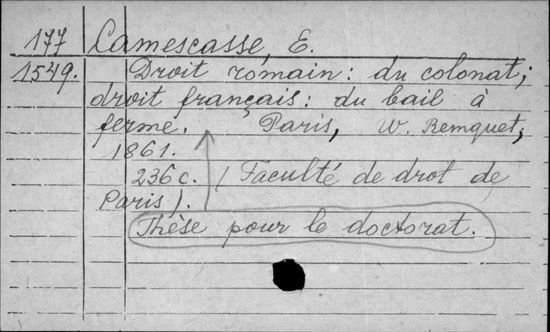 177 Camescasse, E.
1549. Droit romain: du colonat;
droit français: du bail à
ferme. Paris, W. Remquet,
1861.
236 c. (Faculté de drot de
Paris).
Thèse pour le doctorat.